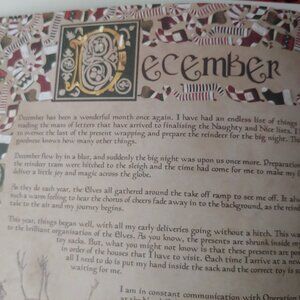 December
December has been a wonderful month once again. I have had an endless list of things
reading the mass of letters that have arrived to finalising the Naughty and Nice lists. I
to oversee the last of the present wrapping and prepare the reindeer for the big night. The
goodness knows how many other things.
December flew by in a blur, and suddenly the big night was upon us once more. Preparation
the reindeer team were hitched to the sleigh and the time had come for me to make my
deliver a little joy and magic across the globe.
As they do each year, the Elves all gathered around the take off ramp to see me off. It alw
such a warm feeling to hear the chorus of cheers fade away in to the background, as the rein
take to the air and my journey begins.
This year, things began well, with all my early deliveries going without a hitch. This wa
to the brilliant organisation of the Elves. As you know, the presents are shrunk inside
toy sacks. But, what you might not know is that these presents are po
in order of the houses that I have to visit. Each time I arrive at a new
all I need to do is put my hand inside the sack and the correct toy is a
waiting for me.
I am in constant communication with